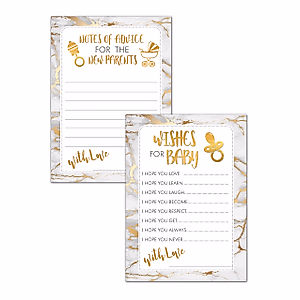 NOTES OF ADVICE
FOR THE
NEW PARENTS
with Love
WISHES
FOR BABY
I HOPE YOU LOVE
I HOPE YOU LEARN
I HOPE YOU LAUGH
I HOPE YOU BECOME
I HOPE YOU RESPECT
I HOPE YOU GET
I HOPE YOU ALWAYS
I HOPE YOU NEVER
with Love